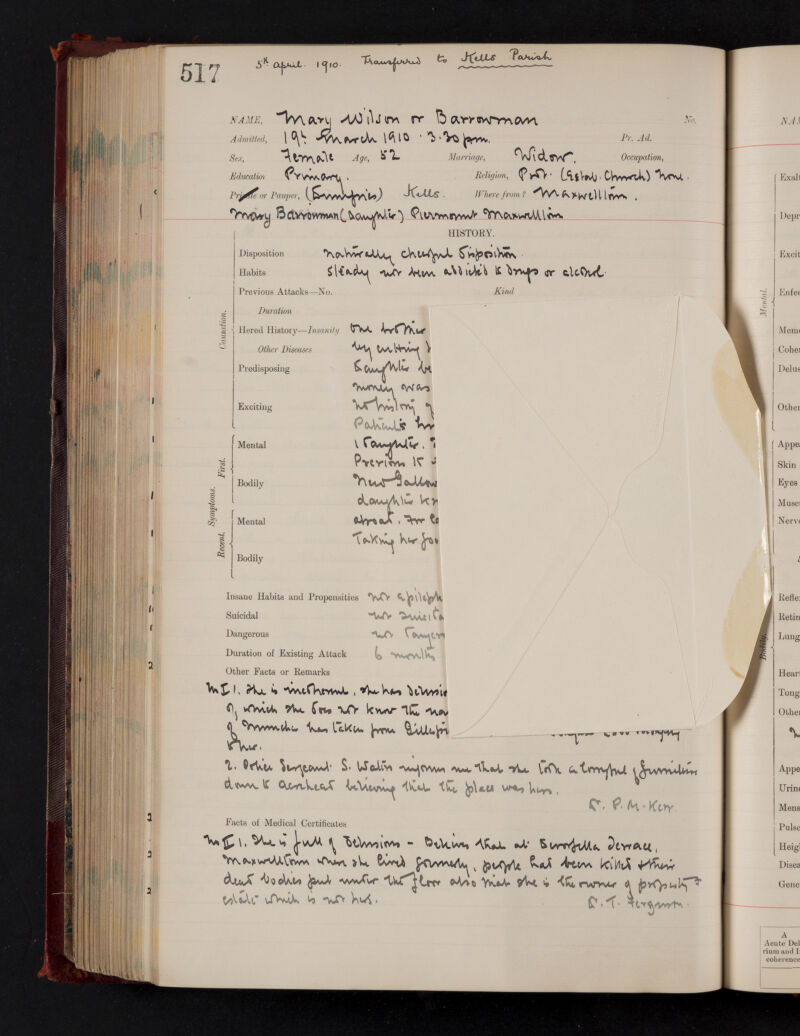 517
5th April. 1910. Transferred to Kells Parish
NAME, Mary Wilson or Barrowman No.
Admitted, 19th March 1910 · 3.30 pm. Pr. Ad.
Sex, Female Age, 52 Marriage, Widow. Occupation,
Education Primary. Religion, Prot. (Estab. Church) None.
Private or Pauper, (Dumfries) Kells. Where from? Maxwelltown.
Mary Barrowman (Daughter) Maxwelltown
HISTORY.
Disposition naturally cheerful disposition.
Habits Steady not been addicted to drugs or alcohol.
Previous Attacks—No. Kind
Duration
Hered History—Insanity One brother
Other Diseases by cutting
Predisposing Daughter be
money was
Exciting no history
Patient's
Mental 1 daughter.
Previous to
Bodily New Gallow
daughter
Mental abroad. For
Taking her foo
Bodily
Causation.
Symptoms.
First.
Recent.
Insane Habits and Propensities not epilept
Suicidal not suicida
Dangerous not dangero
Duration of Existing Attack 6 months
Other Facts or Remarks
1. She is incoherent, she has delusio
of which she does not know the
has taken from
to her.
2. Police Sergeant S. informs me that she took a lorryful of furniture
down to believing that the place was hers.
P. M. Kerr
Facts of Medical Certificates
1. She is full of delusions - Believes that at Terrace,
Maxwelltown when she lived formerly, people had been killed & their
dead bodies put under the floor also that she is the owner of property &
estate which is not hers. T. Ferguson.
NA
Exalt
Depr
Excit
Enfee
Mental.
Memo
Coher
Delus
Other
Appe
Skin
Eyes
Musc
Nerve
Refle
Retin
Lung
Bodily.
Heart
Tong
Other
Appe
Urine
Mens
Pulse
Heig
Disea
Gene
A
Acute Del
rium and I
coherence